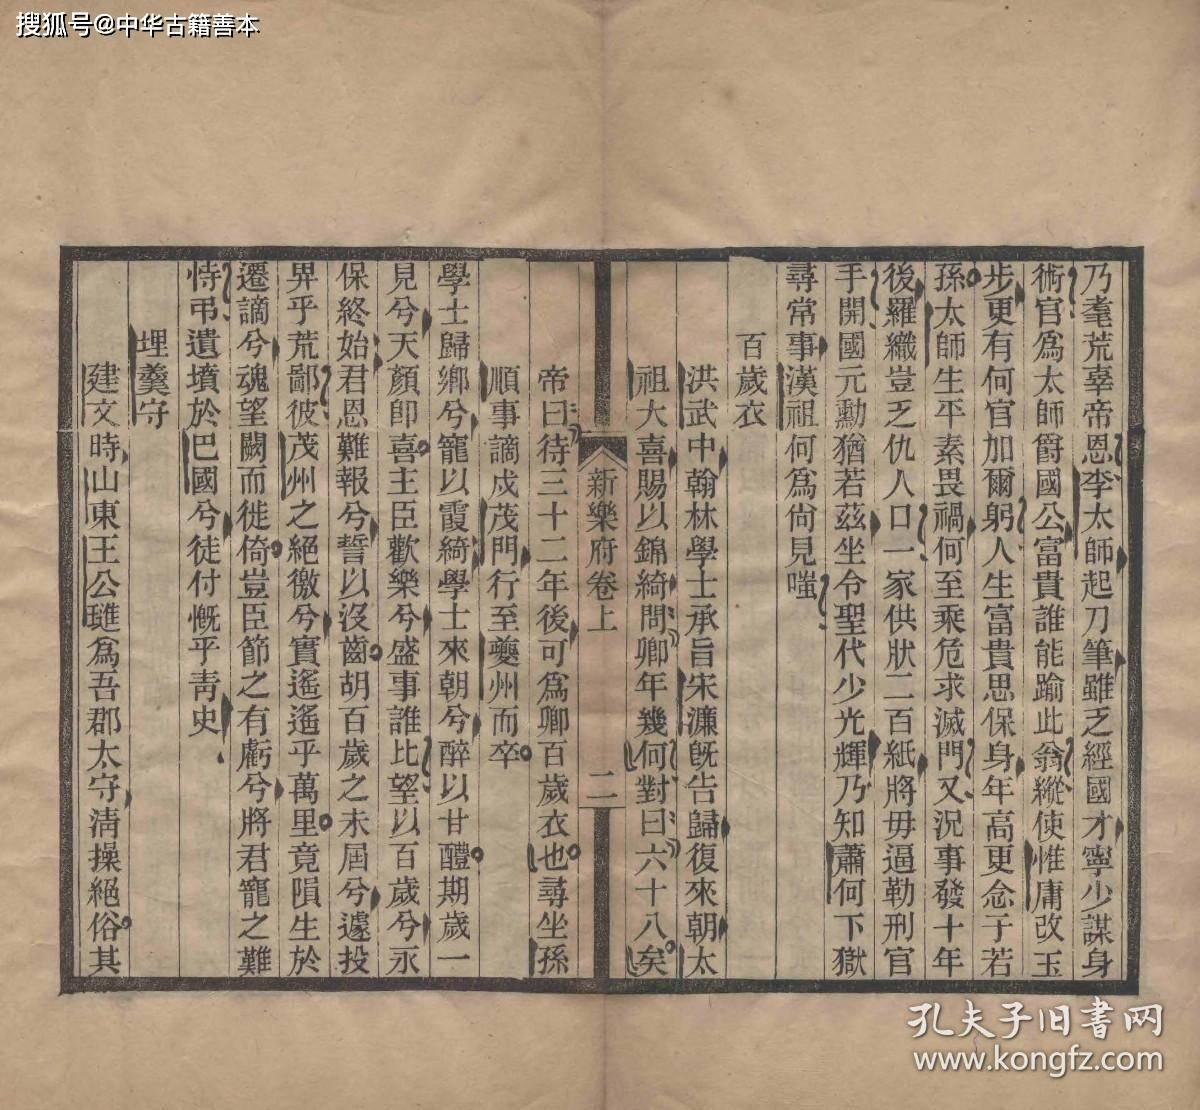 搜狐号@中华古籍善本
乃耄荒辜帝恩李太師起刀筆雖乏經國才寧少謀身
術官爲太師爵國公富貴誰能踰此翁縱使惟庸改玉
步更有何官加爾躬人生富貴思保身年高更念子若
孫太師生平素畏禍何至乘危求滅門又況事發十年
後羅織豈乏仇人口一家供狀二百紙將毋逼勒刑官
手開國元勳猶若茲坐令聖代少光輝乃知蕭何下獄
尋常事漢祖何爲尙見嗤
百歲衣
洪武中翰林學士承旨宋濂旣告歸復來朝太
祖大喜賜以錦綺問卿年幾何對曰六十八矣
新樂府卷上
二
帝曰待三十二年後可爲卿百歲衣也尋坐孫
順事謫戍茂門行至夔州而卒
學士歸鄉兮寵以霞綺學士來朝兮醉以甘醴期歲一
見兮天顏卽喜主臣歡樂兮盛事誰比望以百歲兮永
保終始君恩難報兮誓以沒齒胡百歲之未屆兮遽投
畀乎荒鄙彼茂州之絕徼兮實遙遙乎萬里竟隕生於
遷謫兮魂望闕而徙倚豈臣節之有虧兮將君寵之難
恃弔遺墳於巴國兮徒付慨乎靑史
埋羹守
建文時山東王公璡爲吾郡太守淸操絕俗其
孔夫子旧书网
www.kongfz.com